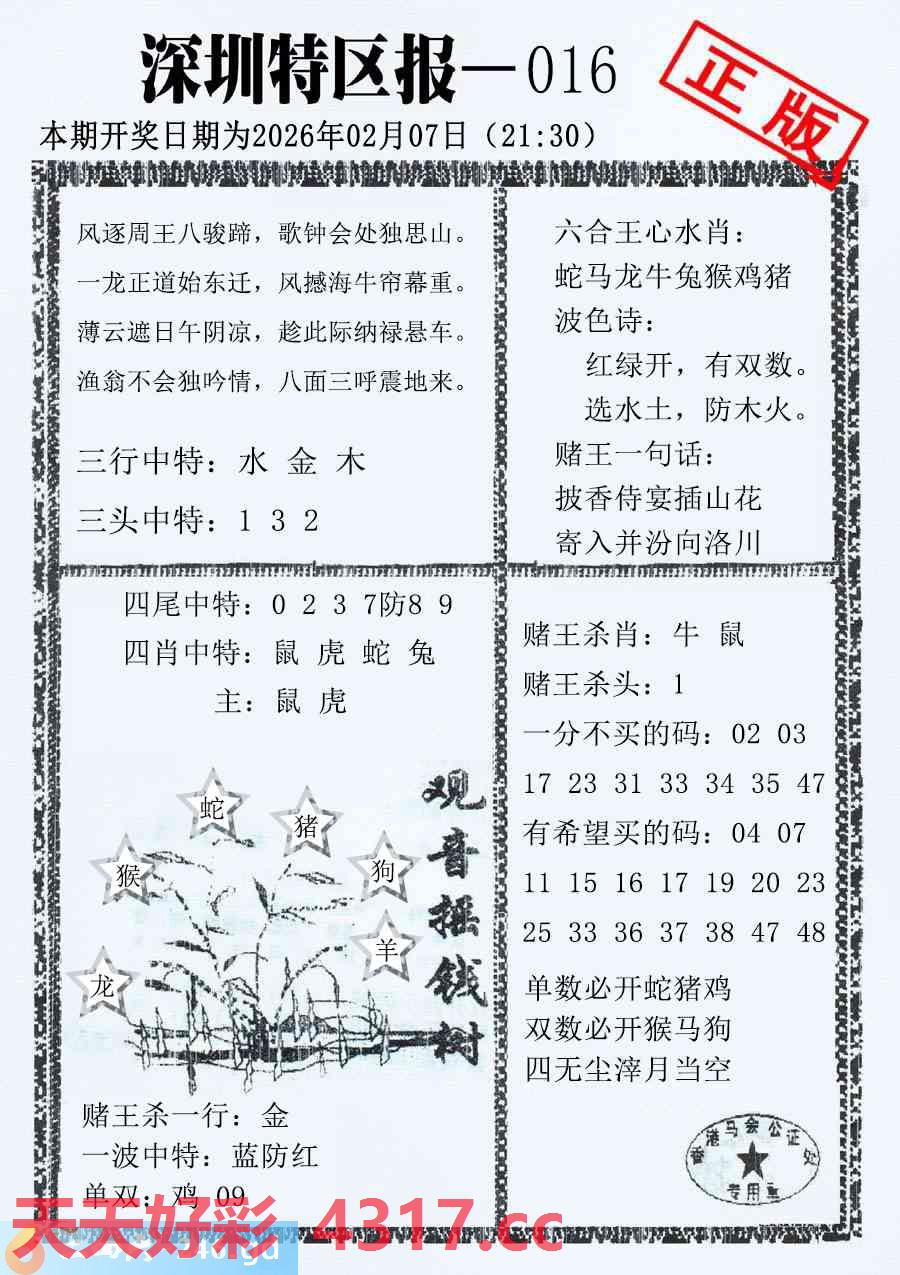 深圳特区报—016
正版
本期开奖日期为2026年02月07日（21:30）
风逐周王八骏蹄，歌钟会处独思山。
一龙正道始东迁，风撼海牛帘幕重。
薄云遮日午阴凉，趁此际纳禄悬车。
渔翁不会独吟情，八面三呼震地来。
三行中特：水 金 木
三头中特：1 3 2
六合王心水肖：
蛇马龙牛兔猴鸡猪
波色诗：
红绿开，有双数。
选水土，防木火。
赌王一句话：
披香侍宴插山花
寄入并汾向洛川
四尾中特：0 2 3 7防8 9
四肖中特：鼠 虎 蛇 兔
主：鼠 虎
观音摇钱树
蛇
猪
猴
狗
羊
龙
赌王杀一行：金
一波中特：蓝防红
单双：鸡 09
赌王杀肖：牛 鼠
赌王杀头：1
一分不买的码：02 03
17 23 31 33 34 35 47
有希望买的码：04 07
11 15 16 17 19 20 23
25 33 36 37 38 47 48
单数必开蛇猪鸡
双数必开猴马狗
四无尘滓月当空
香港马会公证处
专用章
天天好彩 4317.cc